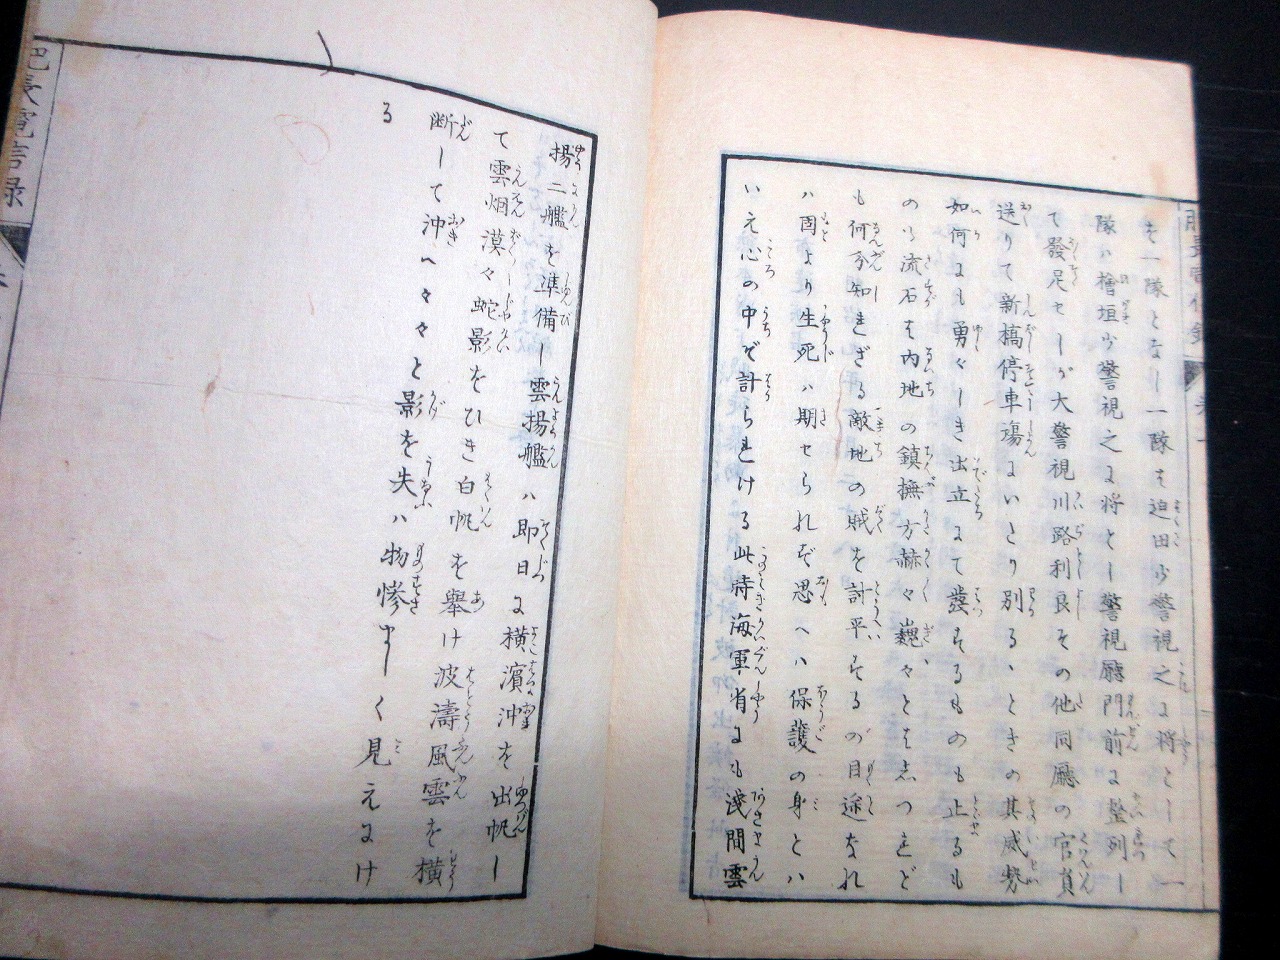 を一隊となし一隊は迫田少警視之に将として一
隊ハ檜垣少警視之に将とし警視廳門前に整列し
て發足セしが大警視川路利良その他同廳の官員
送りて新橋停車塲にいとり別るゝときの其威勢
如何にも勇々しき出立にて發するものも止るも
のも流石は内地の鎮撫方赫々巍々とはしつれど
も何分知れぎる敵地の賊を討平するの目途なれ
ハ固より生死ハ期せられぞ思へハ保護の身とハ
いえ心の中ぞ計られける此時海軍省にも浅間雲
揚二艦を準備し雲揚艦ハ即日に横濵沖を出帆し
て雲烟漠々蛇影をひき白帆を擧け波濤風雲を横
断して沖へ々々と影を失ハ物惨ましく見えにけ
る
肥長電信録